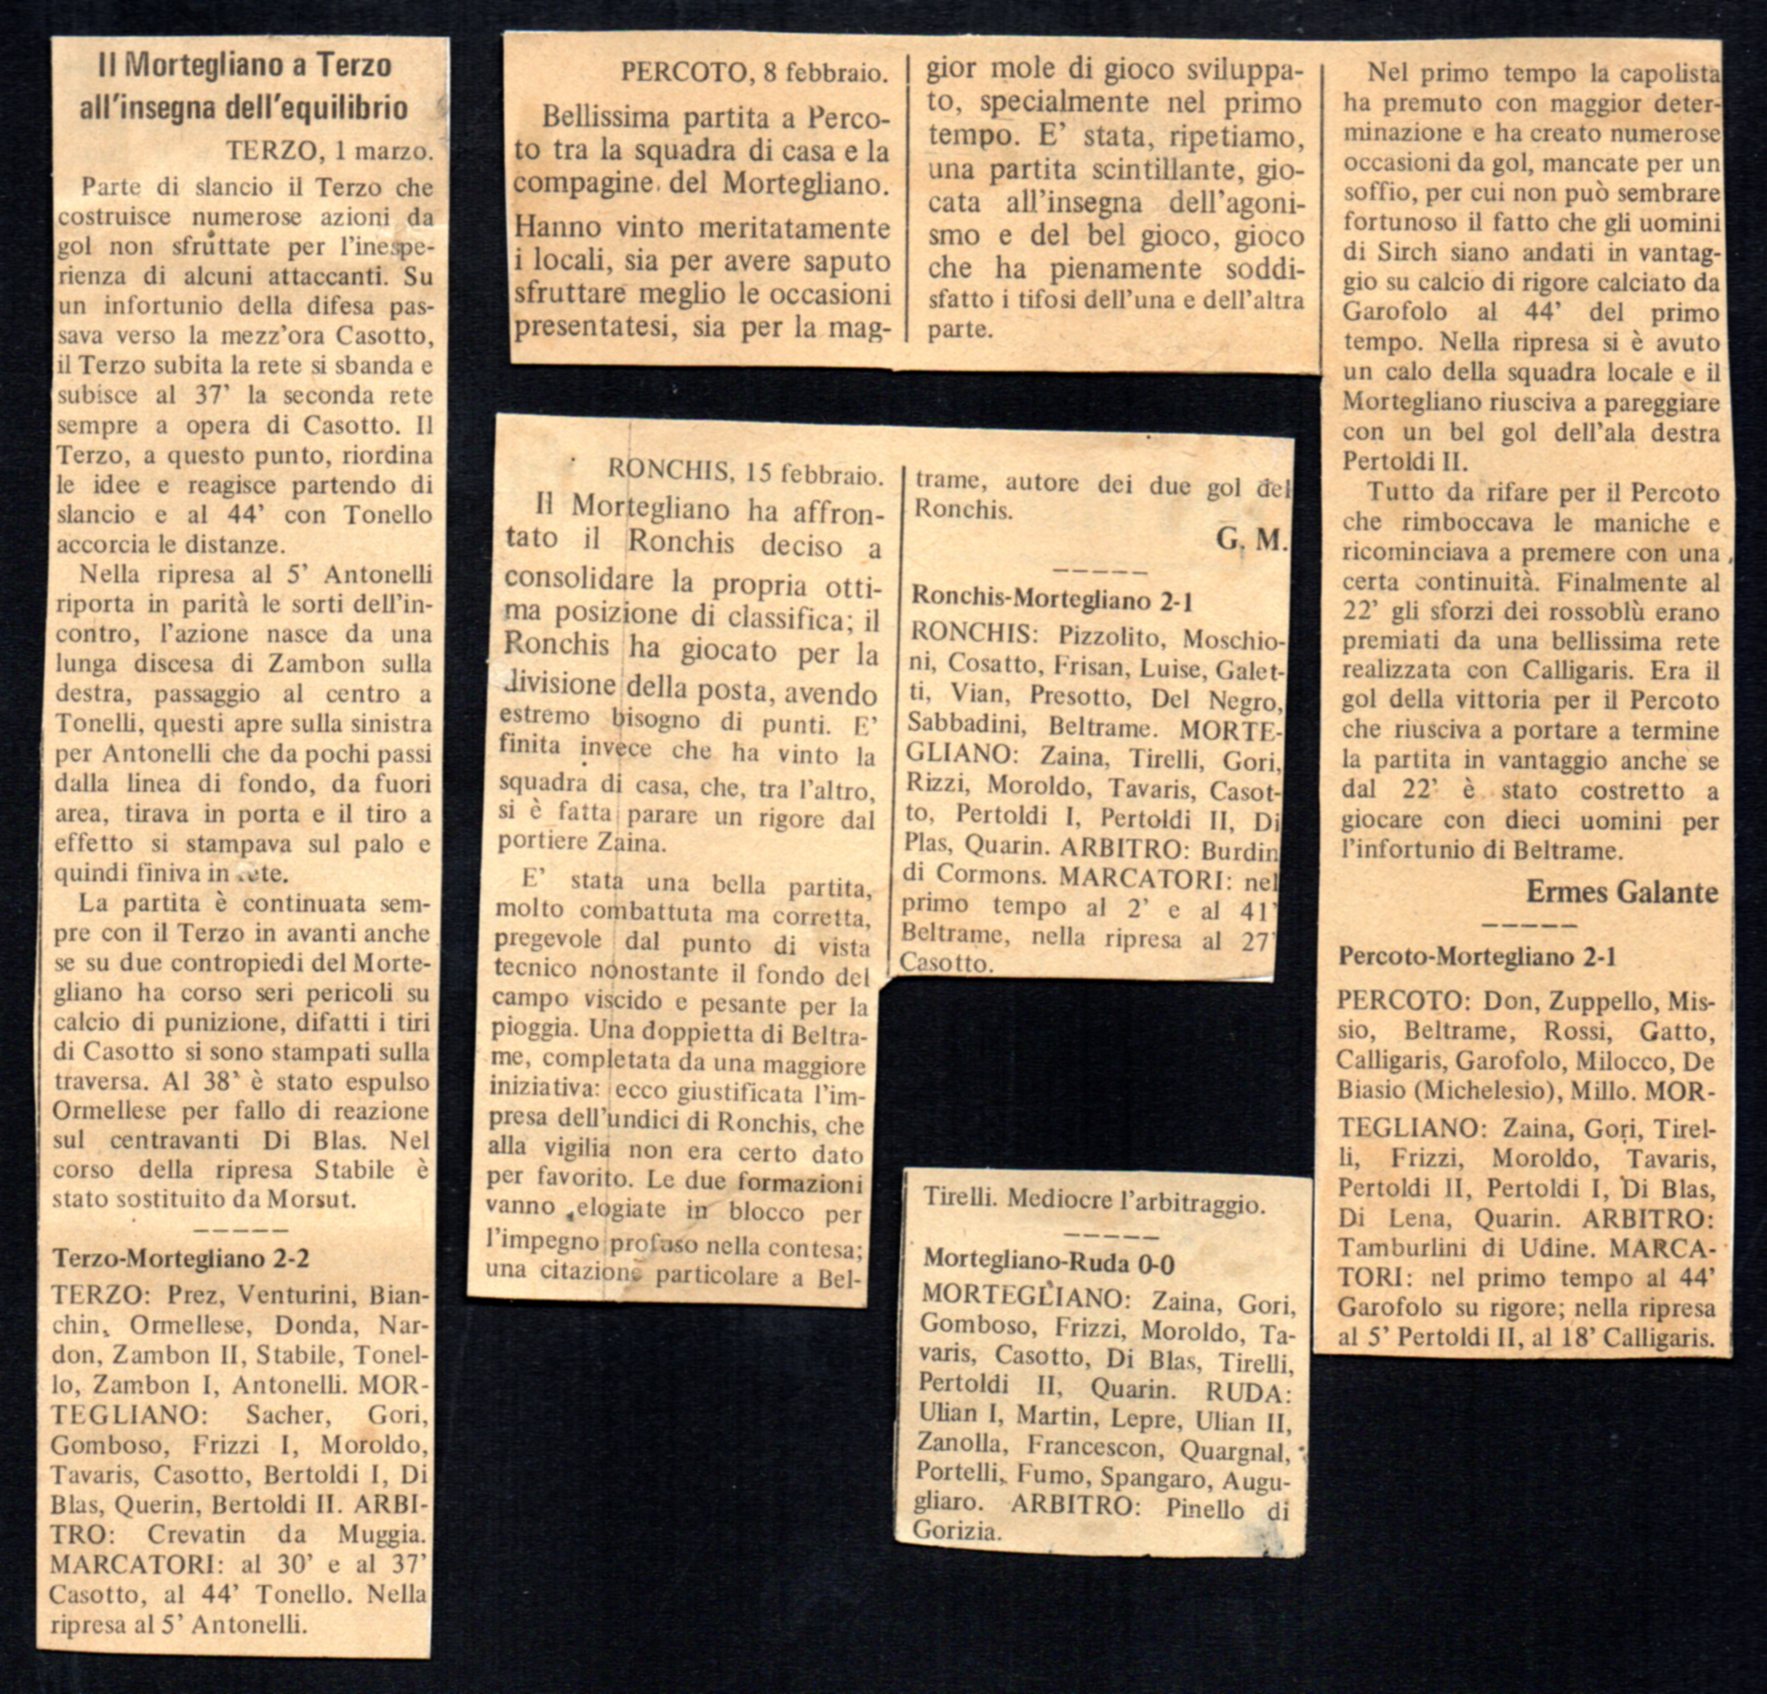 Il Mortegliano a Terzo
all'insegna dell'equilibrio
TERZO, 1 marzo.
Parte di slancio il Terzo che
costruisce numerose azioni da
gol non sfruttate per l'inespe-
rienza di alcuni attaccanti. Su
un infortunio della difesa pas-
sava verso la mezz'ora Casotto,
il Terzo subita la rete si sbanda e
subisce al 37' la seconda rete
sempre a opera di Casotto. Il
Terzo, a questo punto, riordina
le idee e reagisce partendo di
slancio e al 44' con Tonello
accorcia le distanze.
Nella ripresa al 5' Antonelli
riporta in parità le sorti dell'in-
contro, l'azione nasce da una
lunga discesa di Zambon sulla
destra, passaggio al centro a
Tonelli, questi apre sulla sinistra
per Antonelli che da pochi passi
dalla linea di fondo, da fuori
area, tirava in porta e il tiro a
effetto si stampava sul palo e
quindi finiva in rete.
La partita è continuata sem-
pre con il Terzo in avanti anche
se su due contropiedi del Morte-
gliano ha corso seri pericoli su
calcio di punizione, difatti i tiri
di Casotto si sono stampati sulla
traversa. Al 38' è stato espulso
Ormellese per fallo di reazione
sul centravanti Di Blas. Nel
corso della ripresa Stabile è
stato sostituito da Morsut.
Terzo-Mortegliano 2-2
TERZO: Prez, Venturini, Bian-
chin, Ormellese, Donda, Nar-
don, Zambon II, Stabile, Tonel-
lo, Zambon I, Antonelli. MOR-
TEGLIANO: Sacher, Gori,
Gomboso, Frizzi I, Moroldo,
Tavaris, Casotto, Bertoldi I, Di
Blas, Querin, Bertoldi II. ARBI-
TRO: Crevatin da Muggia.
MARCATORI: al 30' e al 37'
Casotto, al 44' Tonello. Nella
ripresa al 5' Antonelli.
PERCOTO, 8 febbraio.
Bellissima partita a Perco-
to tra la squadra di casa e la
compagine del Mortegliano.
Hanno vinto meritatamente
i locali, sia per avere saputo
sfruttare meglio le occasioni
presentatesi, sia per la mag-
gior mole di gioco sviluppa-
to, specialmente nel primo
tempo. E' stata, ripetiamo,
una partita scintillante, gio-
cata all'insegna dell'agoni-
smo e del bel gioco, gioco
che ha pienamente soddi-
sfatto i tifosi dell'una e dell'altra
parte.
Nel primo tempo la capolista
ha premuto con maggior deter-
minazione e ha creato numerose
occasioni da gol, mancate per un
soffio, per cui non può sembrare
fortunoso il fatto che gli uomini
di Sirch siano andati in vantag-
gio su calcio di rigore calciato da
Garofolo al 44' del primo
tempo. Nella ripresa si è avuto
un calo della squadra locale e il
Mortegliano riusciva a pareggiare
con un bel gol dell'ala destra
Pertoldi II.
Tutto da rifare per il Percoto
che rimboccava le maniche e
ricominciava a premere con una
certa continuità. Finalmente al
22' gli sforzi dei rossoblù erano
premiati da una bellissima rete
realizzata con Calligaris. Era il
gol della vittoria per il Percoto
che riusciva a portare a termine
la partita in vantaggio anche se
dal 22' è stato costretto a
giocare con dieci uomini per
l'infortunio di Beltrame.
Ermes Galante
Percoto-Mortegliano 2-1
PERCOTO: Don, Zuppello, Mis-
sio, Beltrame, Rossi, Gatto,
Calligaris, Garofolo, Milocco, De
Biasio (Michelesio), Millo. MOR-
TEGLIANO: Zaina, Gori, Tirel-
li, Frizzi, Moroldo, Tavaris,
Pertoldi II, Pertoldi I, Di Blas,
Di Lena, Quarin. ARBITRO:
Tamburlini di Udine. MARCA-
TORI: nel primo tempo al 44'
Garofolo su rigore; nella ripresa
al 5' Pertoldi II, al 18' Calligaris.
RONCHIS, 15 febbraio.
Il Mortegliano ha affron-
tato il Ronchis deciso a
consolidare la propria otti-
ma posizione di classifica; il
Ronchis ha giocato per la
divisione della posta, avendo
estremo bisogno di punti. E'
finita invece che ha vinto la
squadra di casa, che, tra l'altro,
si è fatta parare un rigore dal
portiere Zaina.
E' stata una bella partita,
molto combattuta ma corretta,
pregevole dal punto di vista
tecnico nonostante il fondo del
campo viscido e pesante per la
pioggia. Una doppietta di Beltra-
me, completata da una maggiore
iniziativa: ecco giustificata l'im-
presa dell'undici di Ronchis, che
alla vigilia non era certo dato
per favorito. Le due formazioni
vanno elogiate in blocco per
l'impegno profuso nella contesa;
una citazione particolare a Bel-
trame, autore dei due gol del
Ronchis.
G. M.
Ronchis-Mortegliano 2-1
RONCHIS: Pizzolito, Moschio-
ni, Cosatto, Frisan, Luise, Galet-
ti, Vian, Presotto, Del Negro,
Sabbadini, Beltrame. MORTE-
GLIANO: Zaina, Tirelli, Gori,
Rizzi, Moroldo, Tavaris, Casot-
to, Pertoldi I, Pertoldi II, Di
Plas, Quarin. ARBITRO: Burdin
di Cormons. MARCATORI: nel
primo tempo al 2' e al 41'
Beltrame, nella ripresa al 27'
Casotto.
Tirelli. Mediocre l'arbitraggio.
Mortegliano-Ruda 0-0
MORTEGLIANO: Zaina, Gori,
Gomboso, Frizzi, Moroldo, Ta-
varis, Casotto, Di Blas, Tirelli,
Pertoldi II, Quarin. RUDA:
Ulian I, Martin, Lepre, Ulian II,
Zanolla, Francescon, Quargnal,
Portelli, Fumo, Spangaro, Augu-
gliaro. ARBITRO: Pinello di
Gorizia.